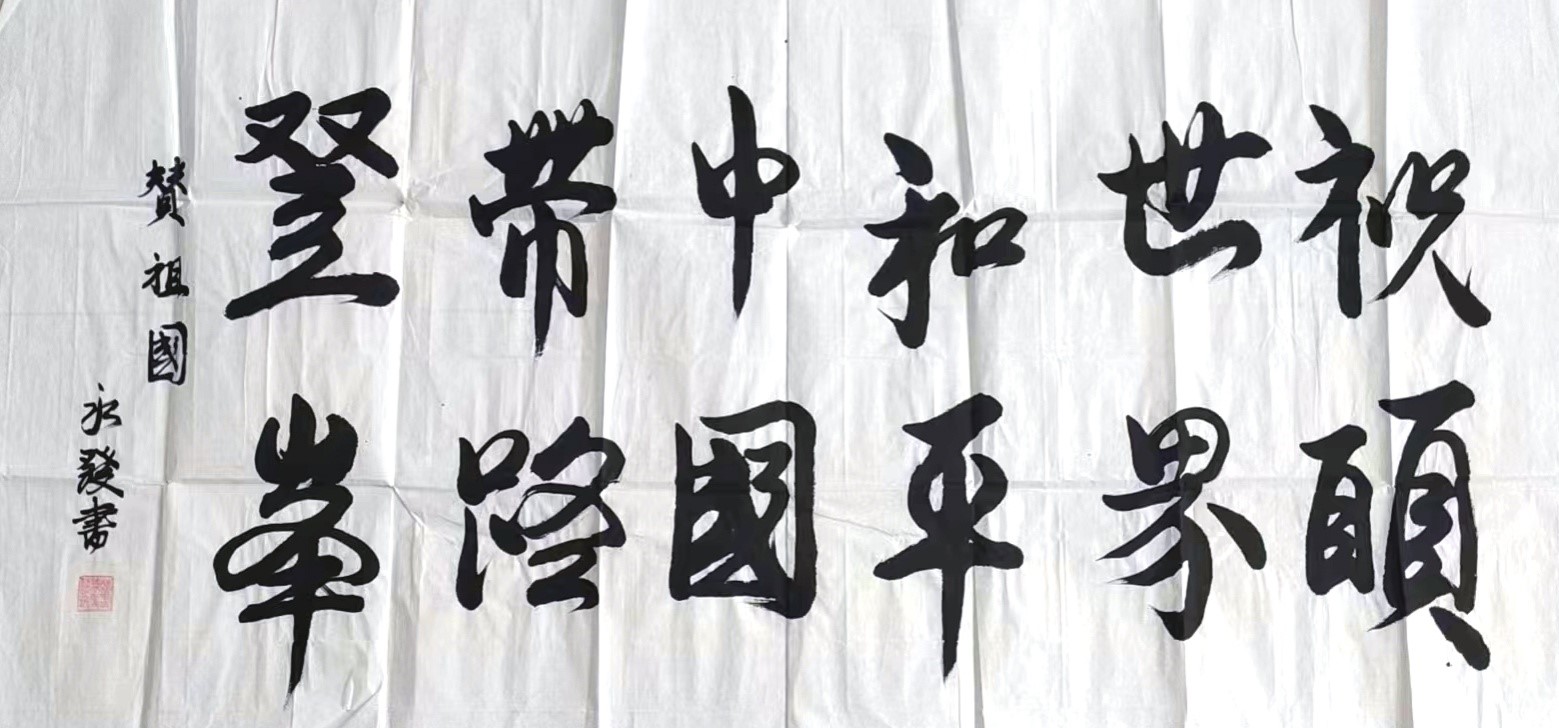 祝願
世界
和平
中國
帶路
登峯
賛祖國
永發書